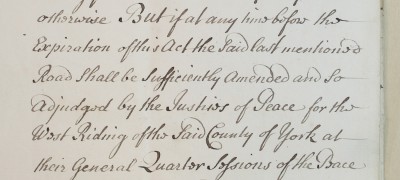 otherwise But if at any time before the
Expiration of this Act the Said last mentioned
Road shall be Sufficiently Amended and So
Adjudged by the Justices of Peace for the
West Riding of the Said County of York at
their General Quarter Sessions of the Peace